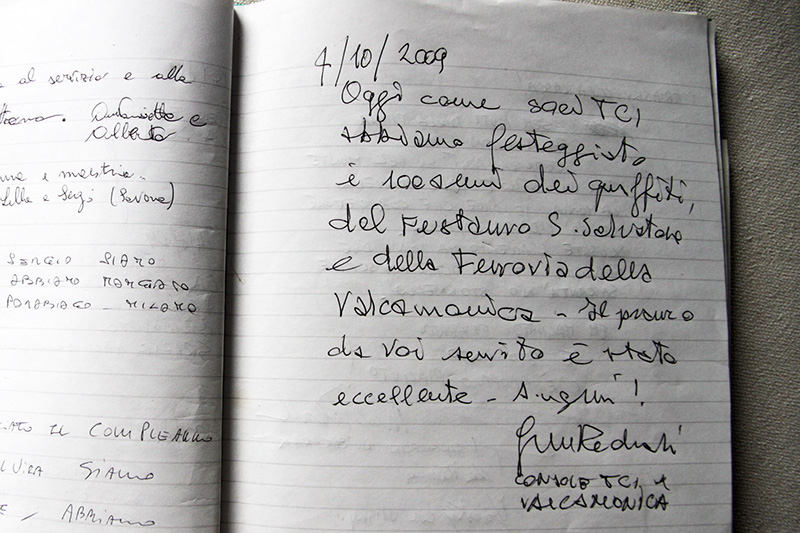 al servizio e alla
Antonietta e
Alberto
e maestria.
e Sergi (Savona)
SERGIO SIAMO
ABBIAMO MANGIATO
PARABIAGO - MILANO
IL COMPLEANNO
SIAMO
/ ABBIAMO
4/10/2009
Oggi come soci TCI
abbiamo festeggiato
i 100 anni dei graffiti,
del restauro S. Salvatore
e della Ferrovia della
Valcamonica - Il pranzo
da voi servito è stato
eccellente - Auguri!
CONSOLE TCI
VALCAMONICA